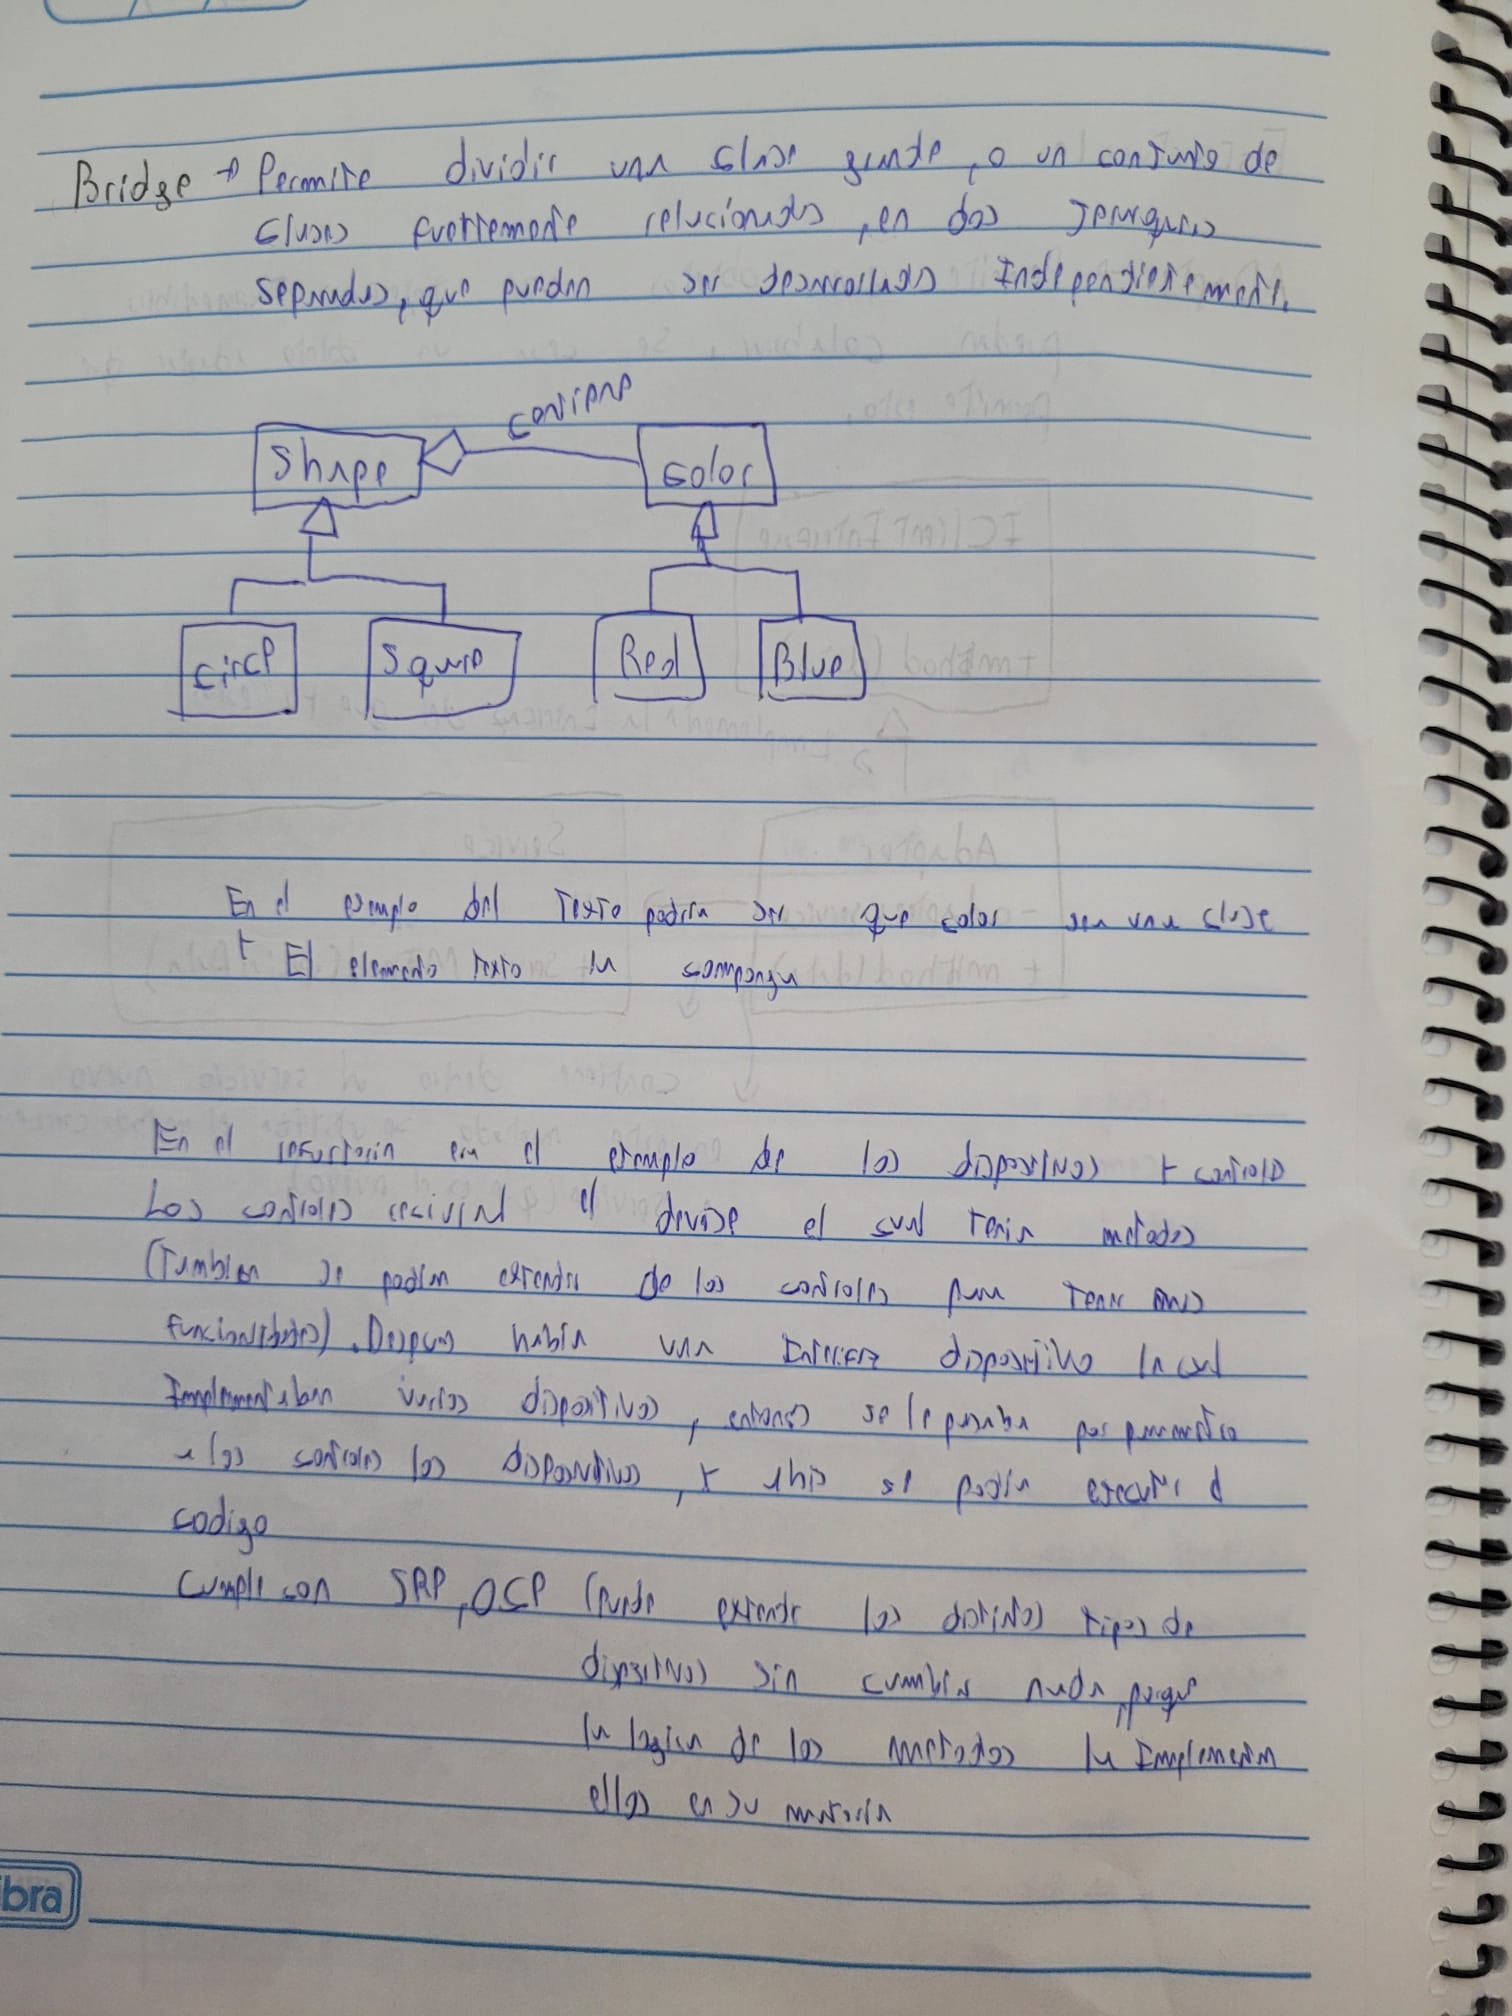 Bridge → Permite dividir una clase grande, o un conjunto de
clases fuertemente relacionadas, en dos jerarquias
separadas, que pueden ser desarrolladas Independientemente.
contiene
Shape Color
Circl Squre Red Blue
En el ejemplo del Texto podria ser que color sea una clase
y El elemento texto la componga
En el era el ejemplo de los dispositivos y controles
Los controles el devise el cual Tenia metodos
(Tambien se podian extender de los controles para Tener mas
funcionalidades). Despues habia una Interfaz dispositivo la cual
Implementaban varios dispositivos, entonces se le pasaba por parametro
a los controles los dispositivos, y ahi se podia el
codigo
Cumple con SRP, OCP (puede extender los distintos tipos de
dispositivos sin cambiar nada, porque
la logica de los metodos la Implementan
ellos en su mayoria
bra